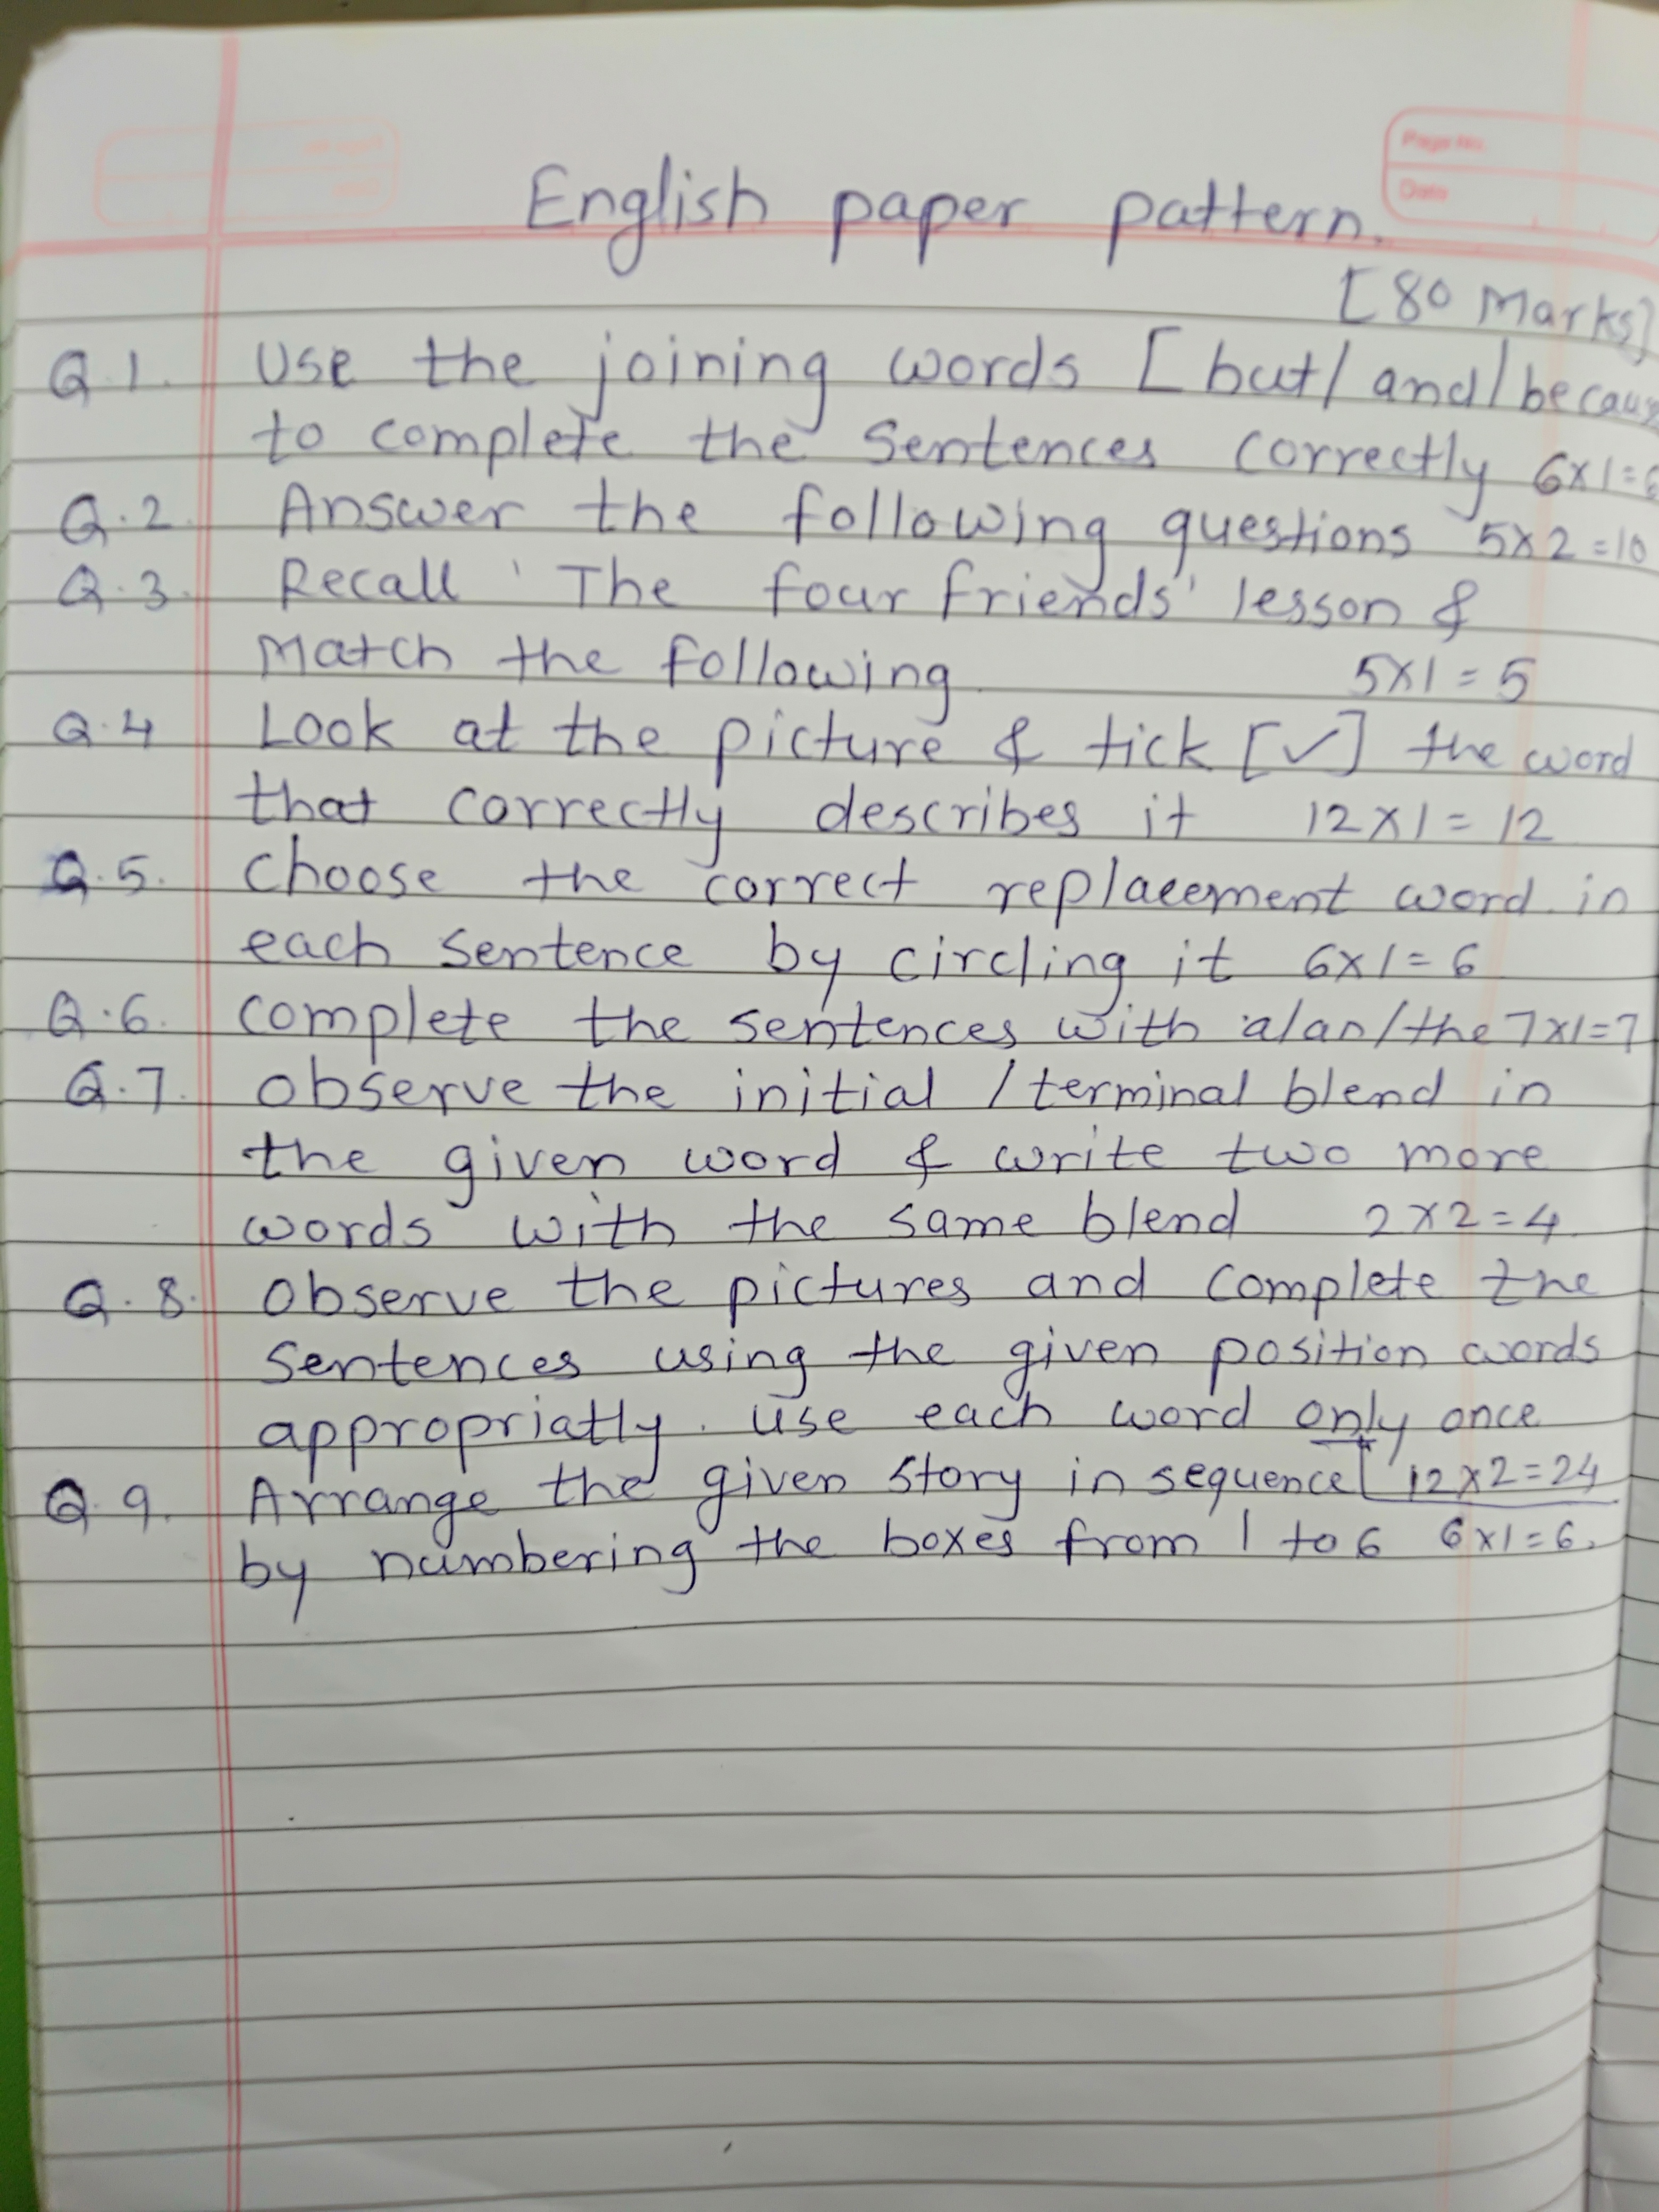 Page No.
Date
English paper pattern.
[80 Marks]
Q.1. Use the joining words [but/and/becaus
to complete the sentences correctly 6x1=6
Q.2. Answer the following questions 5x2=10
Q.3. Recall 'The four friends' lesson &
Match the following. 5x1=5
Q.4 Look at the picture & tick [✓] the word
that correctly describes it 12x1=12
Q.5. Choose the correct replacement word in
each sentence by circling it 6x1=6
Q.6. Complete the sentences with a/an/the 7x1=7
Q.7. Observe the initial / terminal blend in
the given word & write two more
words with the same blend 2x2=4
Q.8. Observe the pictures and complete the
sentences using the given position words
appropriatly. Use each word only once
12x2=24
Q.9. Arrange the given story in sequence
by numbering the boxes from 1 to 6 6x1=6.